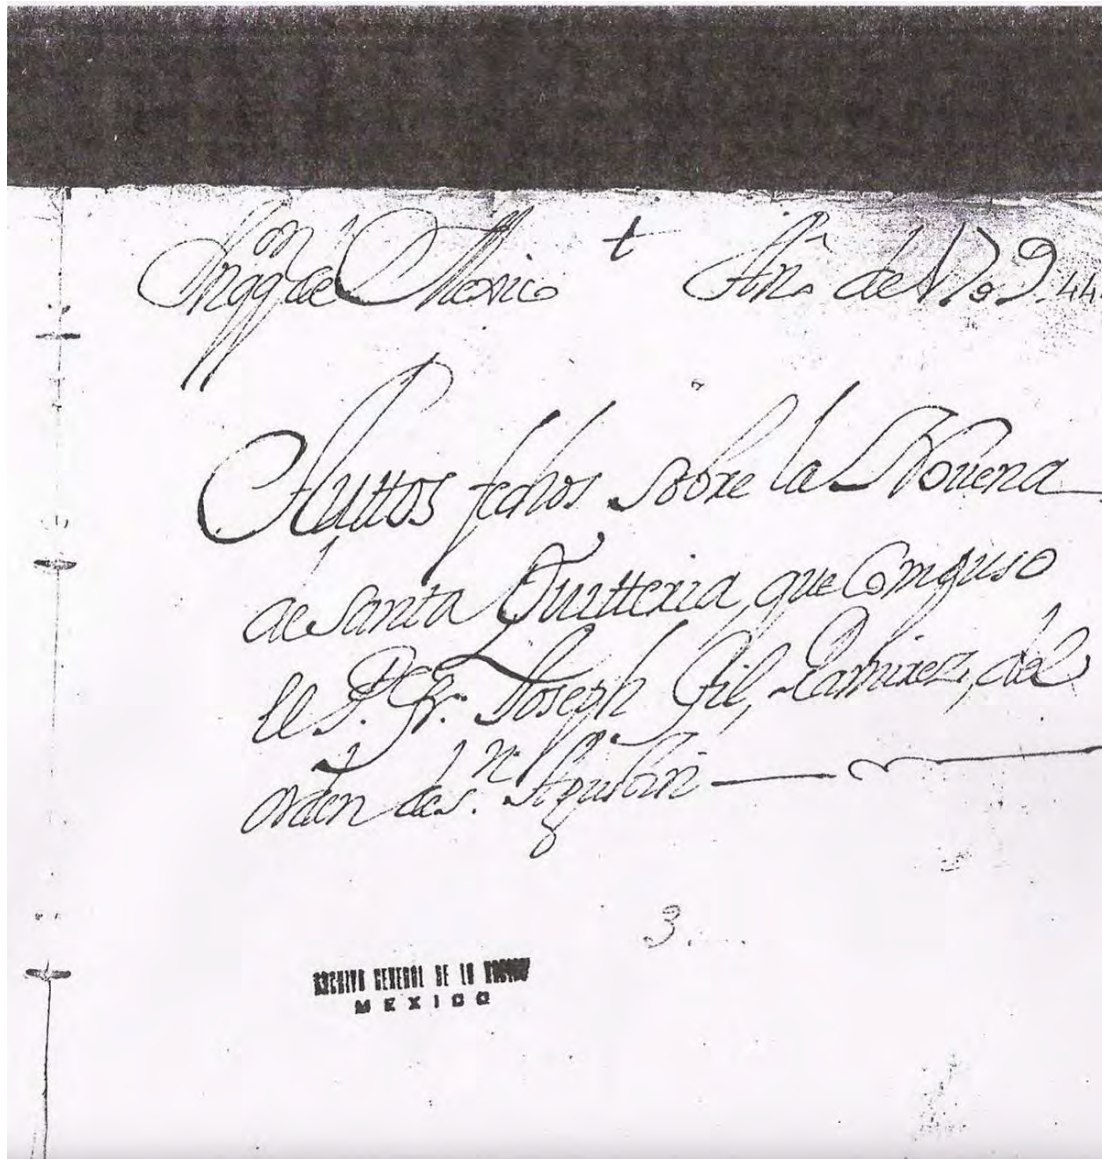 Inqq.on de Mexico † Año de 1709. 44
Auttos fechos sobre la Novena
de Santa Quitteria, que Compuso
el P.e Fr. Joseph Gil, Ramirez, del
orden de S.n Agustin
3
ARCHIVO GENERAL DE LA NACION
MEXICO